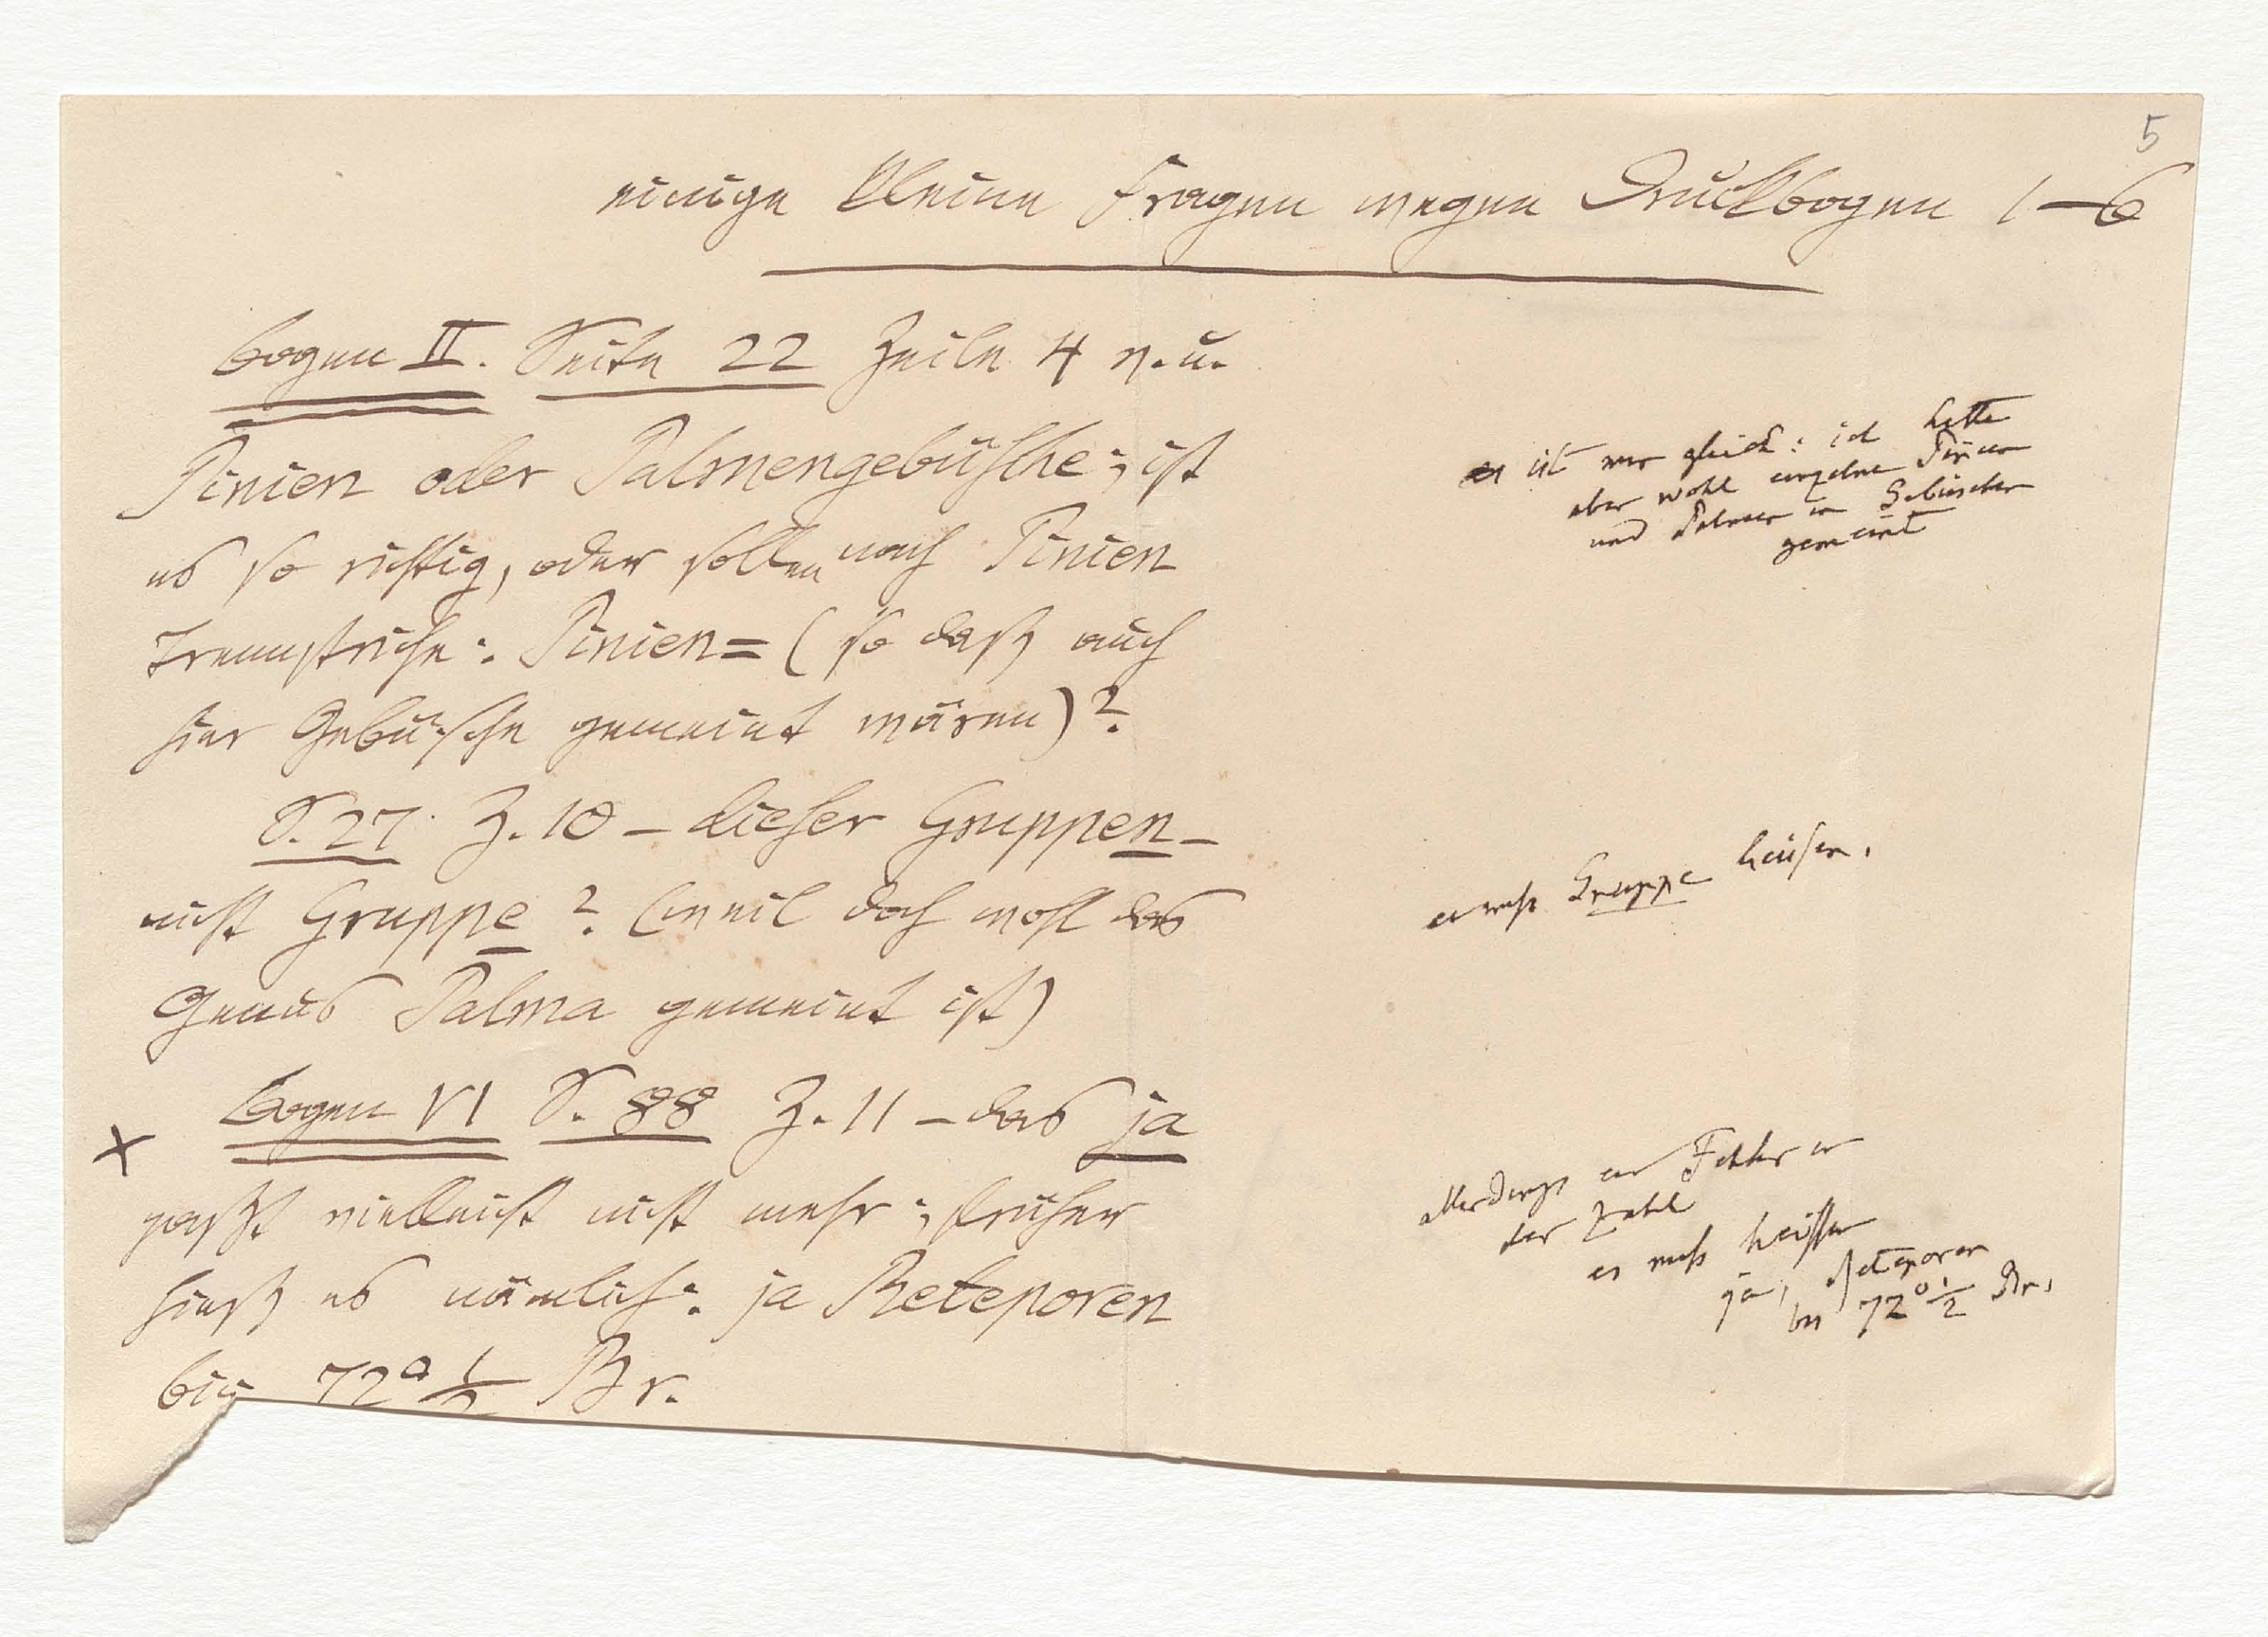 5
einige kleine Fragen wegen Druckbogen 1–6
Bogen II. Seite 22 Zeile 4 v. u.
Pinien oder Palmengebüsche; ist
es so richtig, oder sollen nach Pinien
Trennstriche: Pinien= (so daß auch
hier Gebüsche gemeint wären)?
es ist mir gleich: ich hatte
aber wohl einzelne Pinien
und Palmen in Gebüschen
gemeint
S. 27. Z. 10 – dieser Gruppen –
nicht Gruppe? (weil doch wohl das
Genus Palma gemeint ist)
es muß Gruppe heißen.
Bogen VI S. 88 Z. 11 – das ja
paßt vielleicht nicht mehr; früher
hieß es nämlich: ja Reteporen
bis 72° 1/2 Br.
allerdings ein Fehler in
der Zahl
es muß heißen
ja, Reteporen
bis 72° 1/2 Br.